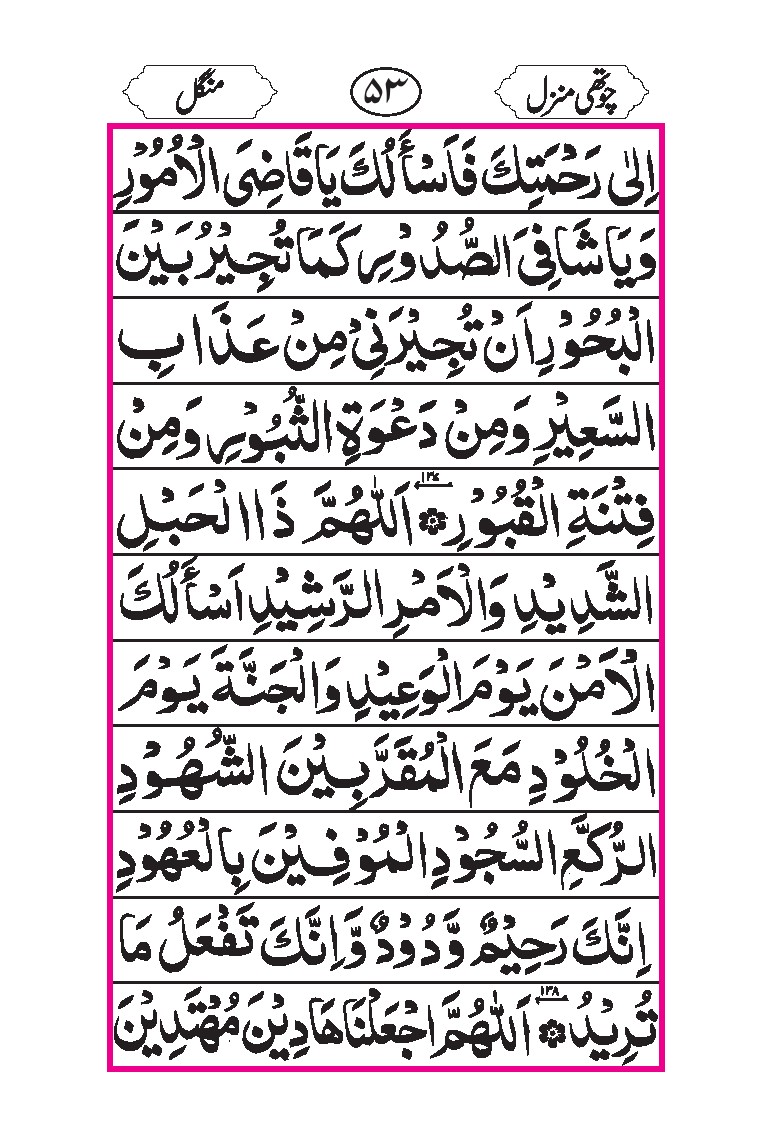 چوتھی منزل
۵۳
منگل
اِلٰی رَحْمَتِكَ فَاَسْأَلُكَ یَا قَاضِیَ الْاُمُوْرِ
وَیَا شَافِیَ الصُّدُوْرِ كَمَا تُجِیْرُ بَیْنَ
الْبُحُوْرِ اَنْ تُجِیْرَنِیْ مِنْ عَذَابِ
السَّعِیْرِ وَمِنْ دَعْوَةِ الثُّبُوْرِ وَمِنْ
فِتْنَةِ الْقُبُوْرِ ۞ اَللّٰهُمَّ ذَا الْحَبْلِ
الشَّدِیْدِ وَالْاَمْرِ الرَّشِیْدِ اَسْأَلُكَ
الْاَمْنَ یَوْمَ الْوَعِیْدِ وَالْجَنَّةَ یَوْمَ
الْخُلُوْدِ مَعَ الْمُقَرَّبِیْنَ الشُّهُوْدِ
الرُّكَّعِ السُّجُوْدِ الْمُوْفِیْنَ بِالْعُهُوْدِ
اِنَّكَ رَحِیْمٌ وَّدُوْدٌ وَّاِنَّكَ تَفْعَلُ مَا
تُرِیْدُ ۞ ۱۳۸ اَللّٰهُمَّ اجْعَلْنَا هَادِیْنَ مُهْتَدِیْنَ